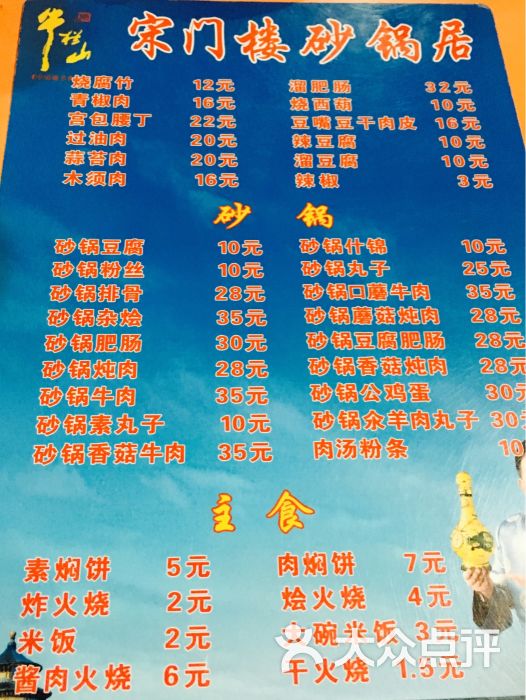 牛栏山
宋门楼砂锅居
烧腐竹 12元 溜肥肠 32元
青椒肉 16元 烧西葫 10元
宫包腰丁 22元 豆嘴豆干肉皮 16元
过油肉 20元 辣豆腐 10元
蒜苔肉 20元 溜豆腐 10元
木须肉 16元 辣椒 3元
砂锅
砂锅豆腐 10元 砂锅什锦 10元
砂锅粉丝 10元 砂锅丸子 25元
砂锅排骨 28元 砂锅口蘑牛肉 35元
砂锅杂烩 35元 砂锅蘑菇炖肉 28元
砂锅肥肠 30元 砂锅豆腐肥肠 28元
砂锅炖肉 28元 砂锅香菇炖肉 28元
砂锅牛肉 35元 砂锅公鸡蛋 30元
砂锅素丸子 10元 砂锅汆羊肉丸子 30
砂锅香菇牛肉 35元 肉汤粉条 10
主食
素焖饼 5元 肉焖饼 7元
炸火烧 2元 烩火烧 4元
米饭 2元 碗米饭 3元
酱肉火烧 6元 干火烧 1.5元
大众点评